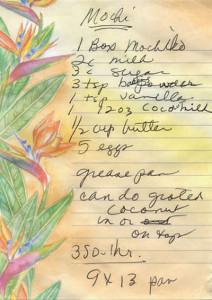 Mochi
1 Box Mochiko
2c milk
3c sugar
3 tsp
1 tsp vanilla
1 12oz coco milk
1/2 cup butter
5 eggs
grease pan
can do grated
coconut
in or
on top
350-1hr.
9 x 13 pan